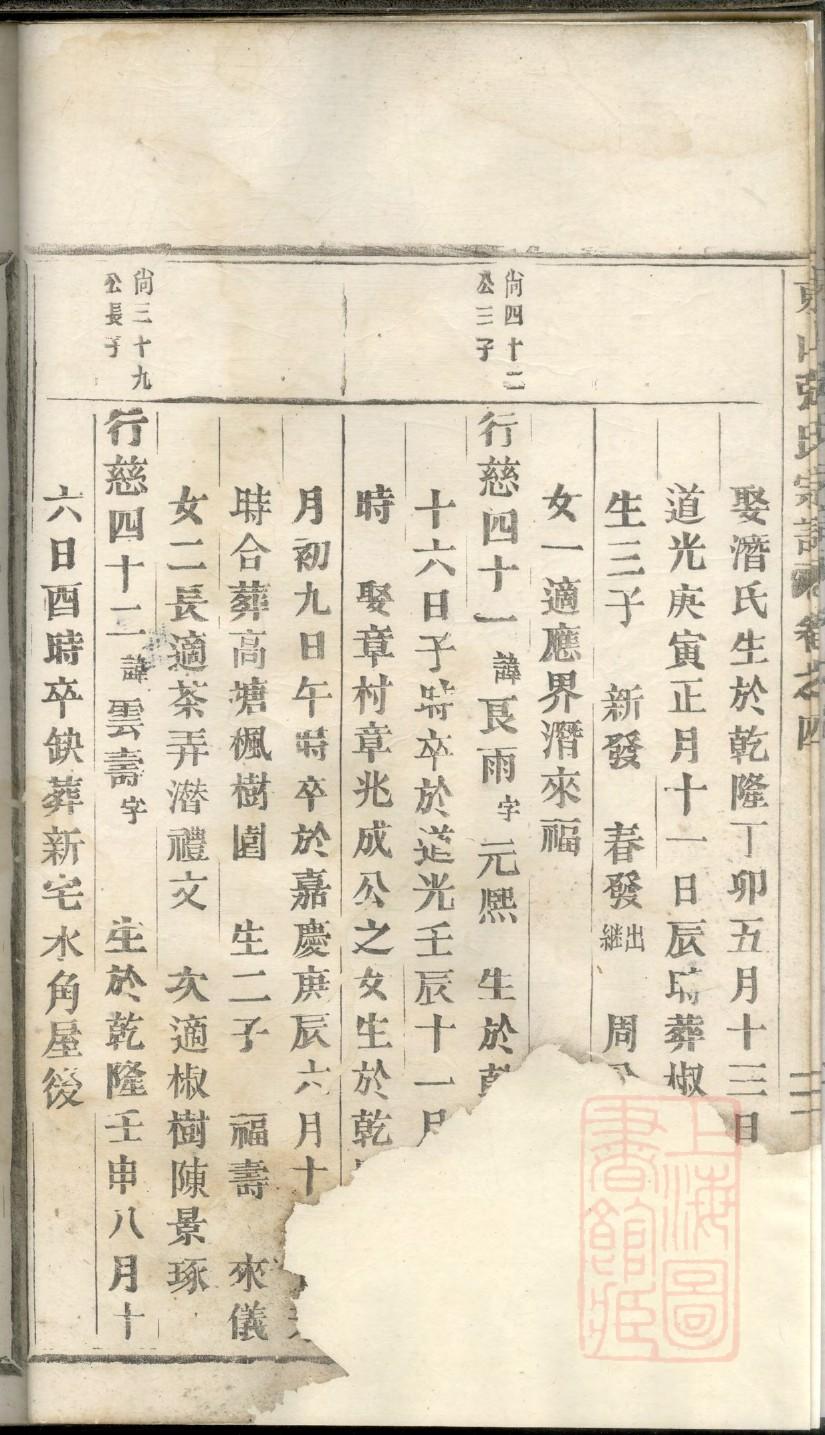 張氏宗譜 卷之四
娶潛氏生於乾隆丁卯五月十三日
道光庚寅正月十一日辰時葬椒
生三子 新發 春發出継 周
女一適應界潛來福
尚四十二公三子
行慈四十一諱良雨字元熙 生於乾
十六日子時卒於道光壬辰十一月
時 娶章村章兆成公之女生於乾
月初九日午時卒於嘉慶庚辰六月十
時合葬高塘楓樹園 生二子 福壽 來儀
女二長適茶弄潛禮文 次適椒樹陳景琢
尚三十九公長子
行慈四十二諱雲壽字 生於乾隆壬申八月十
六日酉時卒缺葬新宅水角屋後
上海圖書館藏